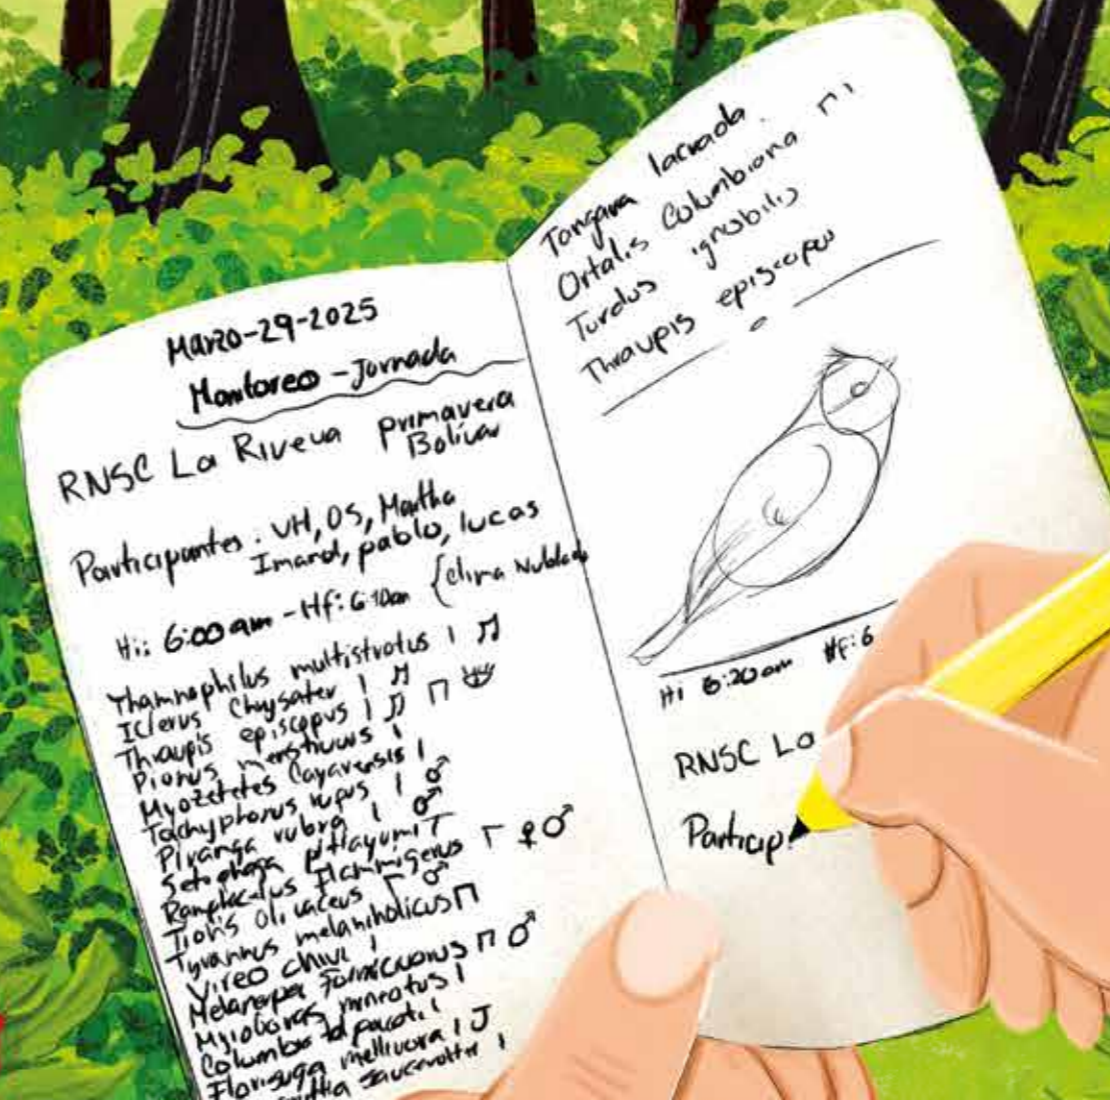 Marzo-29-2025
Monitoreo - Jornada
RNSC La Riveua primavera
Bolívar
Participantes: VH, OS, Martha
Imard, pablo, lucas
Hi: 6:00 am - Hf: 6:10am {clima Nublado
Thamnophilus multistrotus 1 ♫
Icterus Chrysater 1 ♫
Thraupis episcopus 1 ♫ ⊓
Pionus menstruus 1
Myozetetes Cayavensis 1
Tachyphonus rufus 1 ♂
Piranga rubra 1 ♂
Setophaga pitiayumi Γ
Ramphocelus Flammigerus Γ ♀♂
Tiaris Olivaceus Γ ♂
Tyrannus melancholicus ⊓
Vireo chivi 1
Melanerpes Formicivorus ⊓ ♂
Myioborus miniatus 1
Columbina talpacoti 1
Florisuga mellivora 1 J
saucerottei 1
Tangara lacrada
Ortalis Columbiana ⊓ 1
Turdus ignobilis
Thraupis episcopus
Hi 6:20am Hf: 6
RNSC La
Particip